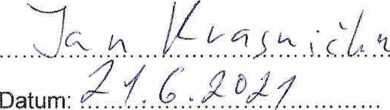 Jan Krasnička
Datum: 21.6.2021